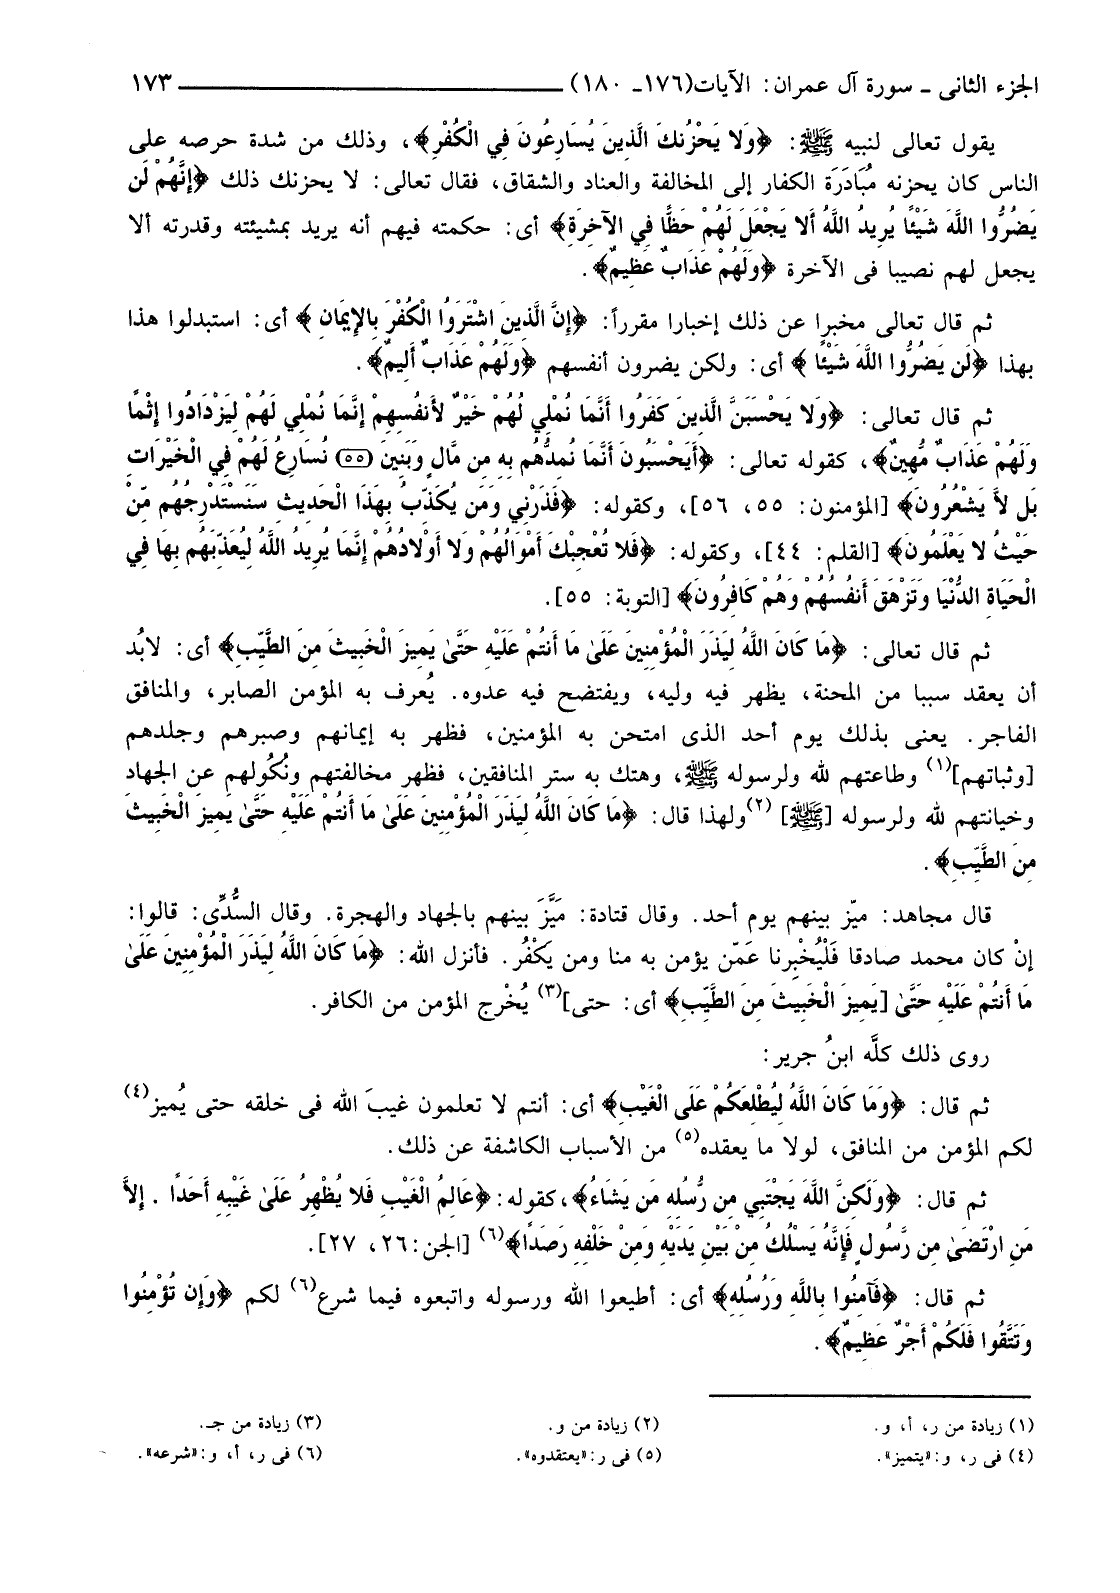 الجزء الثانى ـ سورة آل عمران: الآيات(١٧٦ـ ١٨٠) ١٧٣
يقول تعالى لنبيه ﷺ: ﴿وَلا يَحْزُنكَ الَّذِينَ يُسَارِعُونَ فِي الْكُفْرِ﴾، وذلك من شدة حرصه على
الناس كان يحزنه مُبَادَرَة الكفار إلى المخالفة والعناد والشقاق، فقال تعالى: لا يحزنك ذلك ﴿إِنَّهُمْ لَن
يَضُرُّوا اللَّهَ شَيْئًا يُرِيدُ اللَّهُ أَلا يَجْعَلَ لَهُمْ حَظًّا فِي الآخِرَةِ﴾ أى: حكمته فيهم أنه يريد بمشيئته وقدرته ألا
يجعل لهم نصيبا فى الآخرة ﴿وَلَهُمْ عَذَابٌ عَظِيمٌ﴾.
ثم قال تعالى مخبرا عن ذلك إخبارا مقرراً: ﴿إِنَّ الَّذِينَ اشْتَرَوُا الْكُفْرَ بِالإِيمَانِ ﴾ أى: استبدلوا هذا
بهذا ﴿لَن يَضُرُّوا اللَّهَ شَيْئًا ﴾ أى: ولكن يضرون أنفسهم ﴿وَلَهُمْ عَذَابٌ أَلِيمٌ﴾.
ثم قال تعالى: ﴿وَلا يَحْسَبَنَّ الَّذِينَ كَفَرُوا أَنَّمَا نُمْلِي لَهُمْ خَيْرٌ لأَنفُسِهِمْ إِنَّمَا نُمْلِي لَهُمْ لِيَزْدَادُوا إِثْمًا
وَلَهُمْ عَذَابٌ مُّهِينٌ﴾، كقوله تعالى: ﴿أَيَحْسَبُونَ أَنَّمَا نُمِدُّهُم بِهِ مِن مَّالٍ وَبَنِينَ (٥٥) نُسَارِعُ لَهُمْ فِي الْخَيْرَاتِ
بَل لاَّ يَشْعُرُونَ﴾ [المؤمنون: ٥٥، ٥٦]، وكقوله: ﴿فَذَرْنِي وَمَن يُكَذِّبُ بِهَذَا الْحَدِيثِ سَنَسْتَدْرِجُهُم مِّنْ
حَيْثُ لا يَعْلَمُونَ﴾ [القلم: ٤٤]، وكقوله: ﴿فَلا تُعْجِبْكَ أَمْوَالُهُمْ وَلا أَوْلادُهُمْ إِنَّمَا يُرِيدُ اللَّهُ لِيُعَذِّبَهُم بِهَا فِي
الْحَيَاةِ الدُّنْيَا وَتَزْهَقَ أَنفُسُهُمْ وَهُمْ كَافِرُونَ﴾ [التوبة: ٥٥].
ثم قال تعالى: ﴿مَا كَانَ اللَّهُ لِيَذَرَ الْمُؤْمِنِينَ عَلَىٰ مَا أَنتُمْ عَلَيْهِ حَتَّىٰ يَمِيزَ الْخَبِيثَ مِنَ الطَّيِّبِ﴾ أى: لابُد
أن يعقد سببا من المحنة، يظهر فيه وليه، ويفتضح فيه عدوه. يُعرف به المؤمن الصابر، والمنافق
الفاجر. يعنى بذلك يوم أحد الذى امتحن به المؤمنين، فظهر به إيمانهم وصبرهم وجلدهم
[وثباتهم](١) وطاعتهم لله ولرسوله ﷺ، وهتك به ستر المنافقين، فظهر مخالفتهم ونُكُولهم عن الجهاد
وخيانتهم لله ولرسوله [ﷺ] (٢)ولهذا قال: ﴿مَا كَانَ اللَّهُ لِيَذَرَ الْمُؤْمِنِينَ عَلَىٰ مَا أَنتُمْ عَلَيْهِ حَتَّىٰ يَمِيزَ الْخَبِيثَ
مِنَ الطَّيِّبِ﴾.
قال مجاهد: ميّز بينهم يوم أحد. وقال قتادة: مَيَّزَ بينهم بالجهاد والهجرة. وقال السُّدِّى: قالوا:
إنْ كان محمد صادقا فَلْيُخْبِرنا عَمّن يؤمن به منا ومن يَكْفُر. فأنزل الله: ﴿مَا كَانَ اللَّهُ لِيَذَرَ الْمُؤْمِنِينَ عَلَىٰ
مَا أَنتُمْ عَلَيْهِ حَتَّىٰ [يَمِيزَ الْخَبِيثَ مِنَ الطَّيِّبِ﴾ أى: حتى](٣) يُخْرج المؤمن من الكافر.
روى ذلك كلَّه ابنُ جرير:
ثم قال: ﴿وَمَا كَانَ اللَّهُ لِيُطْلِعَكُمْ عَلَى الْغَيْبِ﴾ أى: أنتم لا تعلمون غيبَ الله فى خلقه حتى يُميز(٤)
لكم المؤمن من المنافق، لولا ما يعقده(٥) من الأسباب الكاشفة عن ذلك.
ثم قال: ﴿وَلَكِنَّ اللَّهَ يَجْتَبِي مِن رُّسُلِهِ مَن يَشَاءُ﴾،كقوله: ﴿عَالِمُ الْغَيْبِ فَلا يُظْهِرُ عَلَىٰ غَيْبِهِ أَحَدًا . إِلاَّ
مَنِ ارْتَضَىٰ مِن رَّسُولٍ فَإِنَّهُ يَسْلُكُ مِنْ بَيْنِ يَدَيْهِ وَمِنْ خَلْفِهِ رَصَدًا﴾(٦) [الجن:٢٦، ٢٧].
ثم قال: ﴿فَآمِنُوا بِاللَّهِ وَرُسُلِهِ﴾ أى: أطيعوا الله ورسوله واتبعوه فيما شرع(٦) لكم ﴿وَإِن تُؤْمِنُوا
وَتَتَّقُوا فَلَكُمْ أَجْرٌ عَظِيمٌ﴾.
(١) زيادة من ر، أ، و. (٢) زيادة من و. (٣) زيادة من جـ.
(٤) فى ر، و:«يتميز». (٥) فى ر:«يعتقدوه». (٦) فى ر، أ، و:«شرعه».